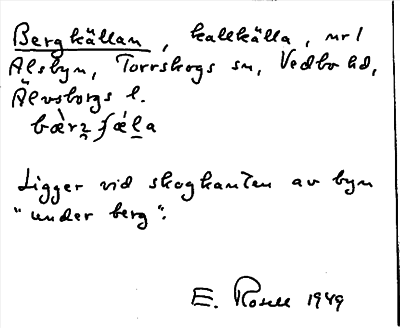 Bergkällan, kallkälla, nr 1
Alsbyn, Torrskogs sn, Vedbo hd,
Älvsborgs l.
bæ̀rʒ ʃæ̀la
Ligger vid skogkanten av byn
"under berg".
E. Rosell 1949